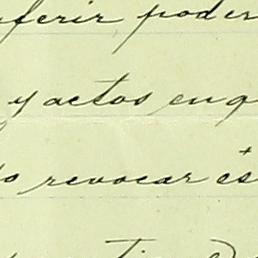 ferir poder
y actos en q
o revocar és